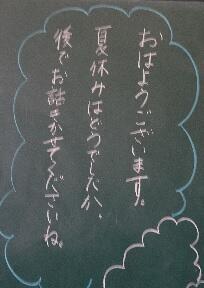 おはようございます。
夏休みはどうでしたか、
後でお話きかせてくださいね。